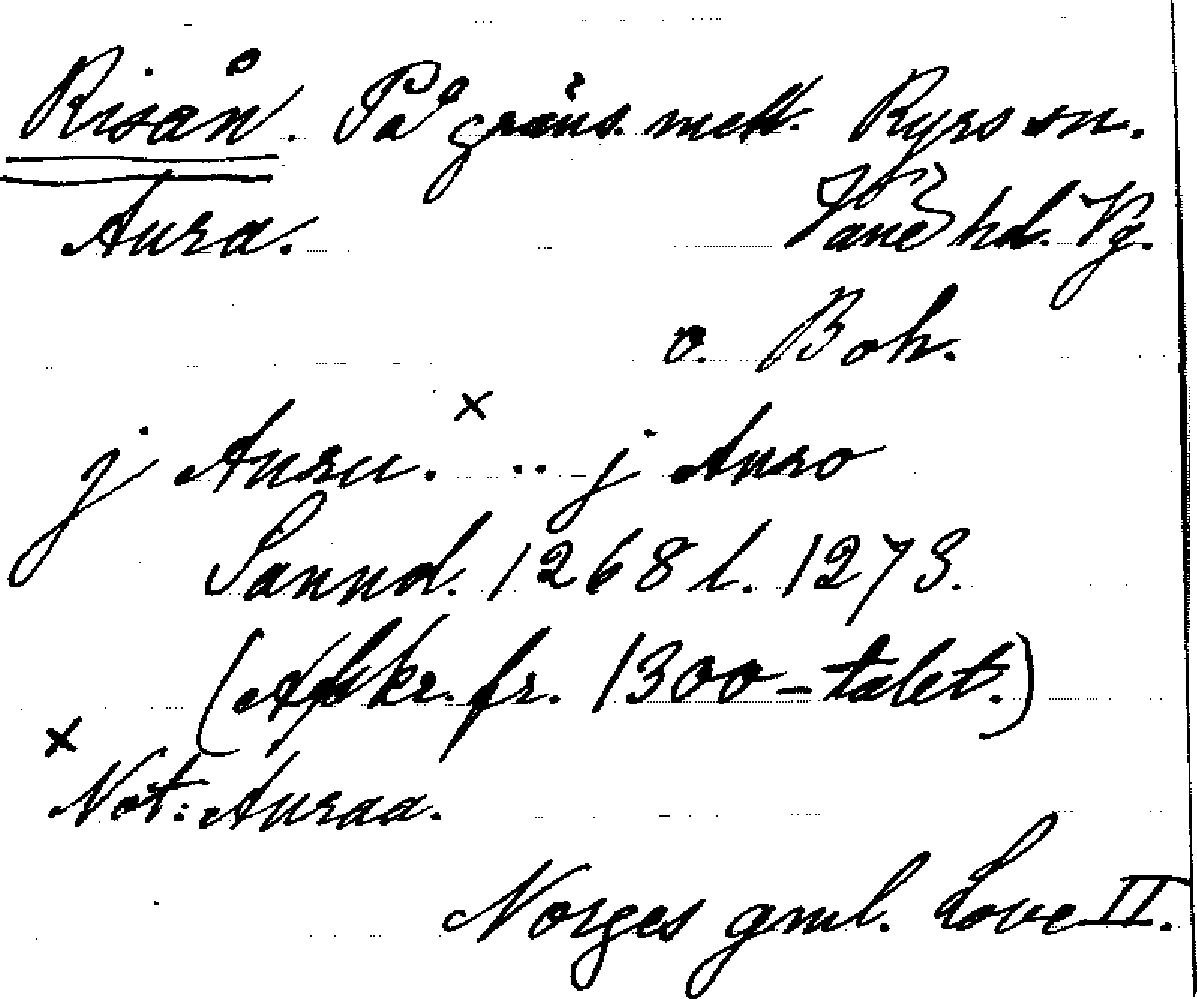 Risån. På gräns. mell. Ryrs sn.
Aura. Väne hd. Vg.
o. Boh.
j Auru. x .. j Auro
Sannd. 1268 l. 1273.
(Afskr. fr. 1300-talet.)
x
Not: Auraa.
Norges gml. Love II.